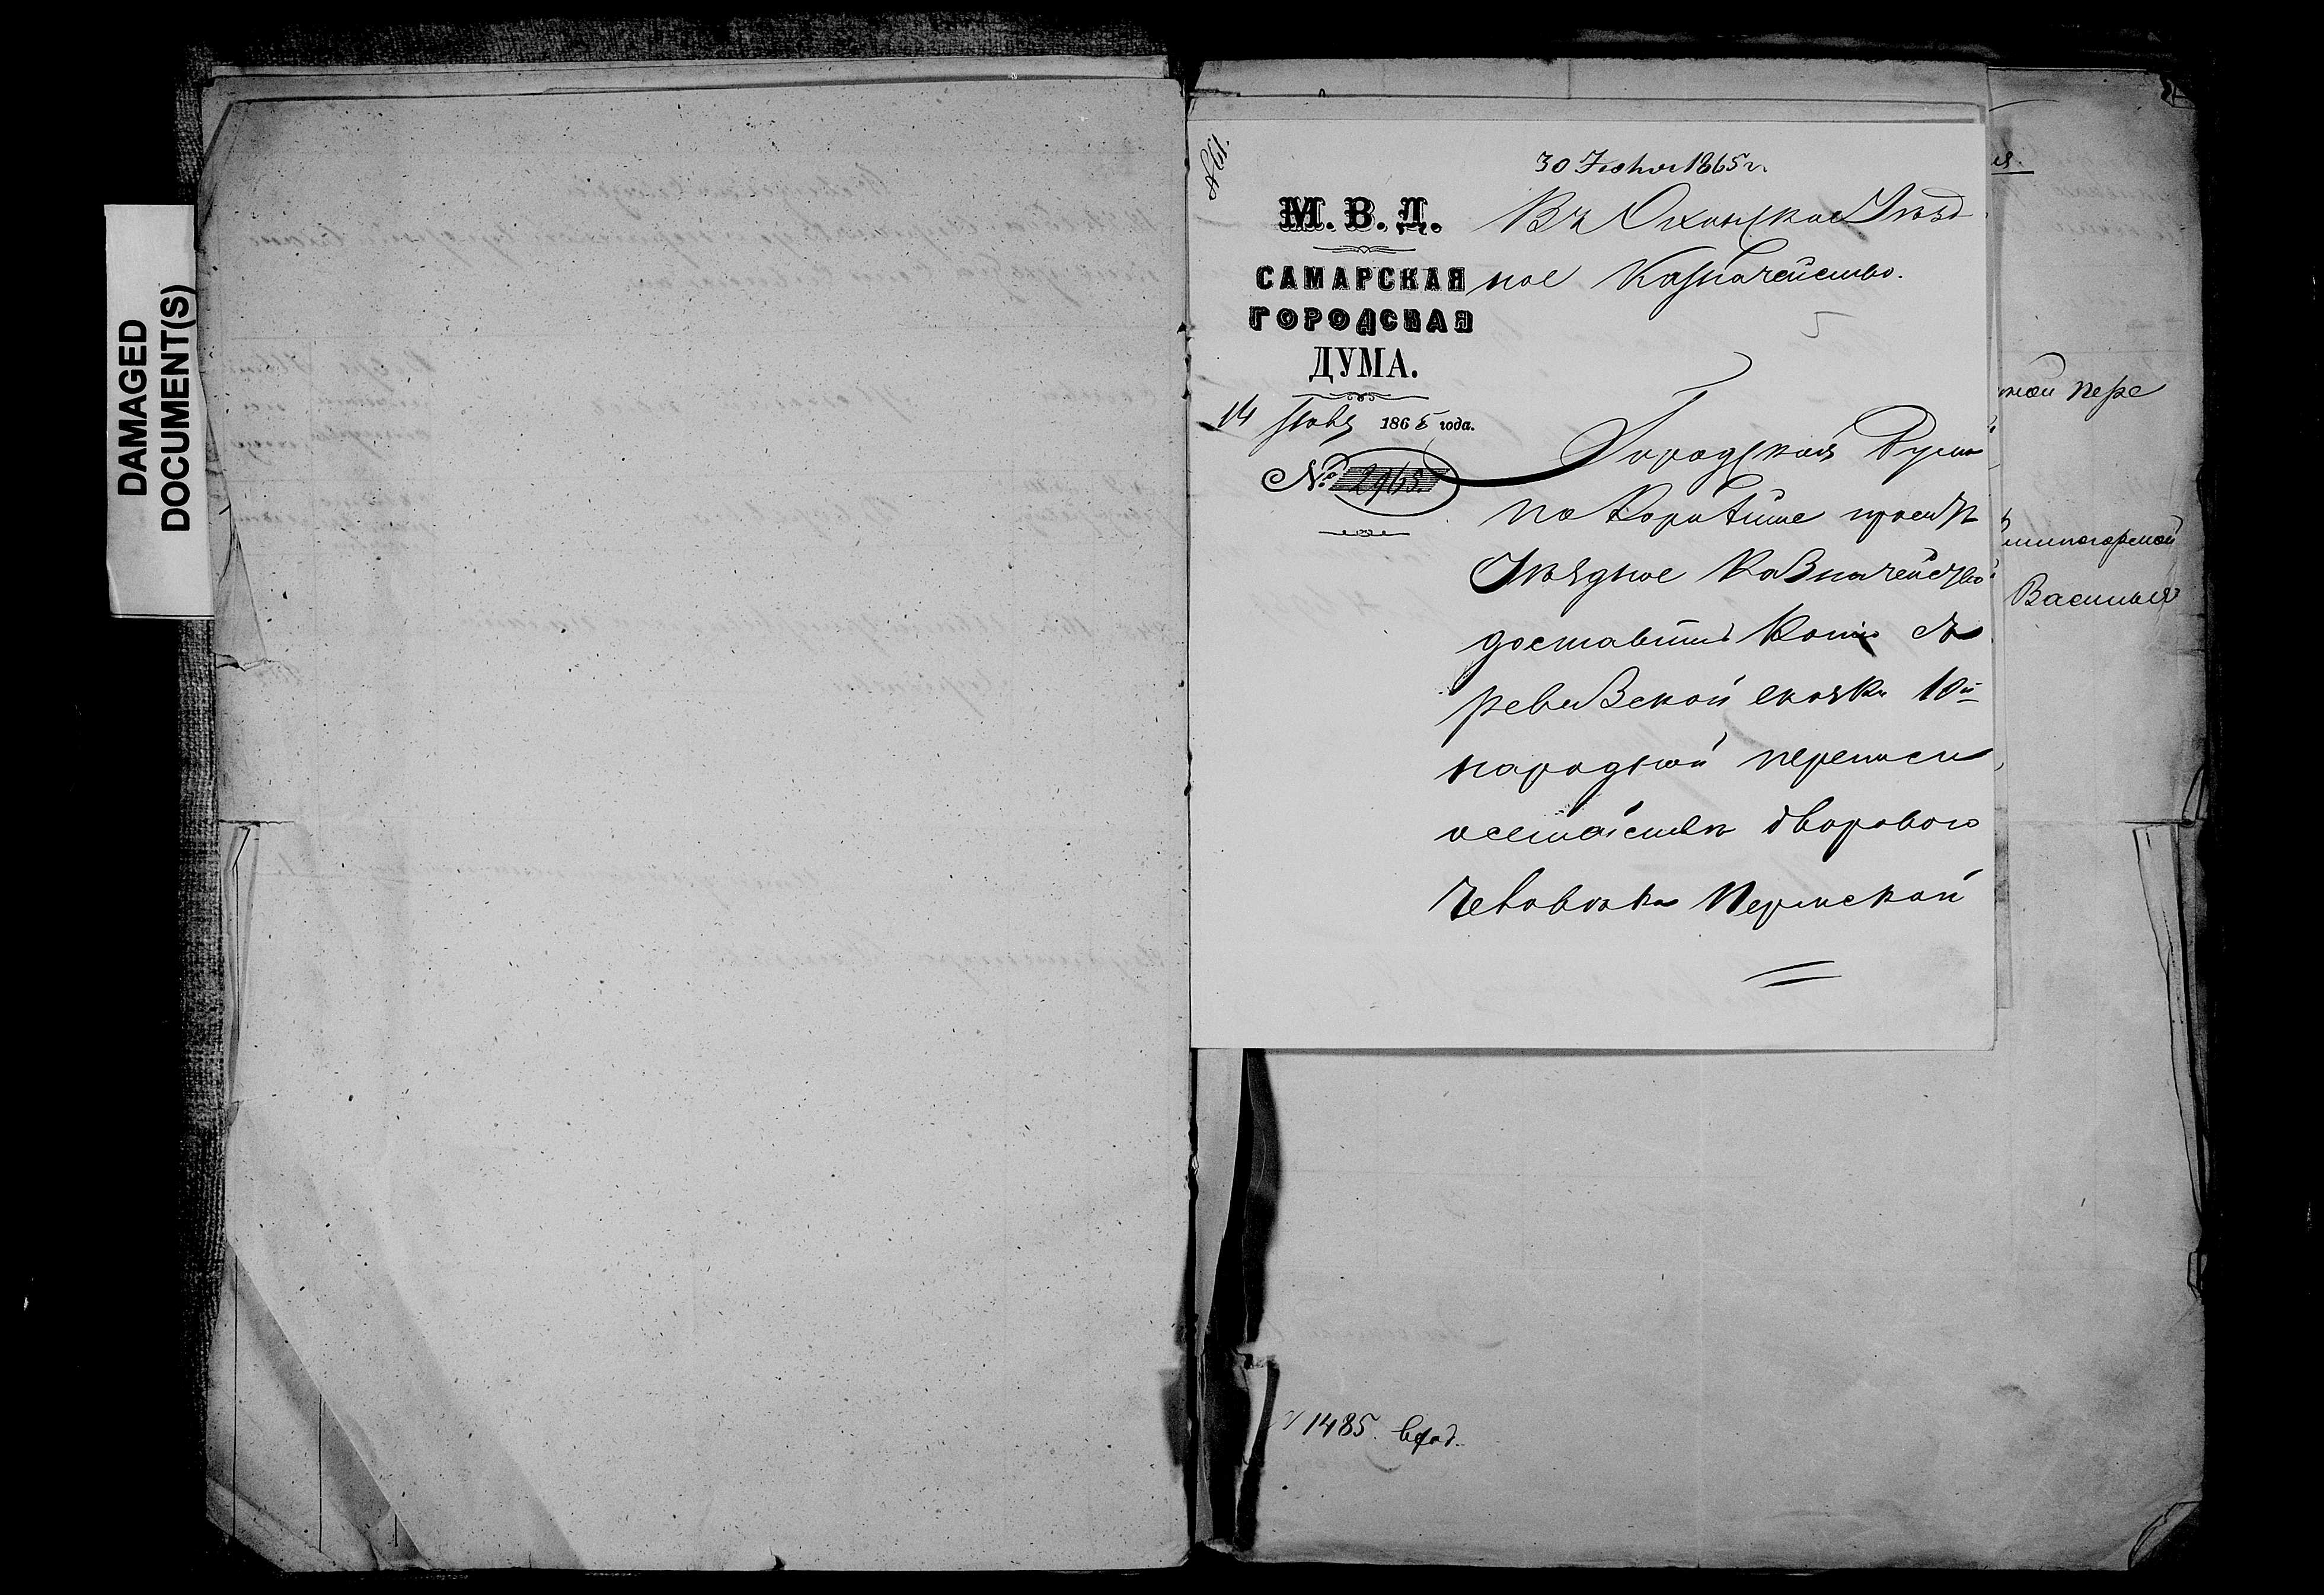 DAMAGED
DOCUMENT(S)
30 Июня 1865 г.
М. В. Д.
САМАРСКАЯ
ГОРОДСКАЯ
ДУМА.
14 Июня 1865 года.
№ 2965.
Въ Оханское Уѣзд
ное Казначейство.
Городская Дума
покорнѣйше проситъ
Уѣздное Казначейство
доставить Копію съ
ревизской сказки 10й
народной переписи
о семействѣ двороваго
человѣка Пермской
ной пере
Василья
1485. вход.